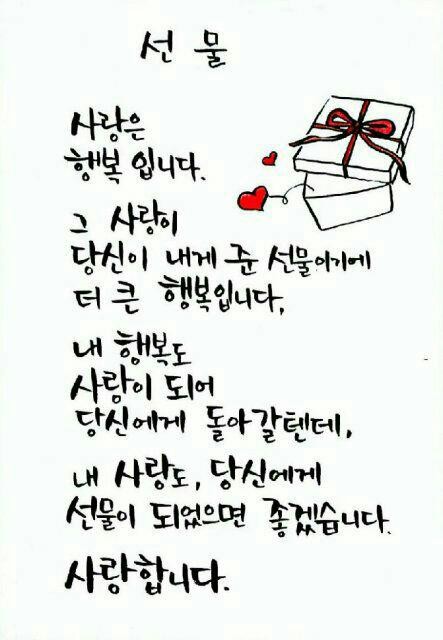 선물
사랑은
행복입니다.
그 사랑이
당신이 내게 준 선물이기에
더 큰 행복입니다,
내 행복도
사랑이 되어
당신에게 돌아갈텐데,
내 사랑도, 당신에게
선물이 되었으면 좋겠습니다.
사랑합니다.